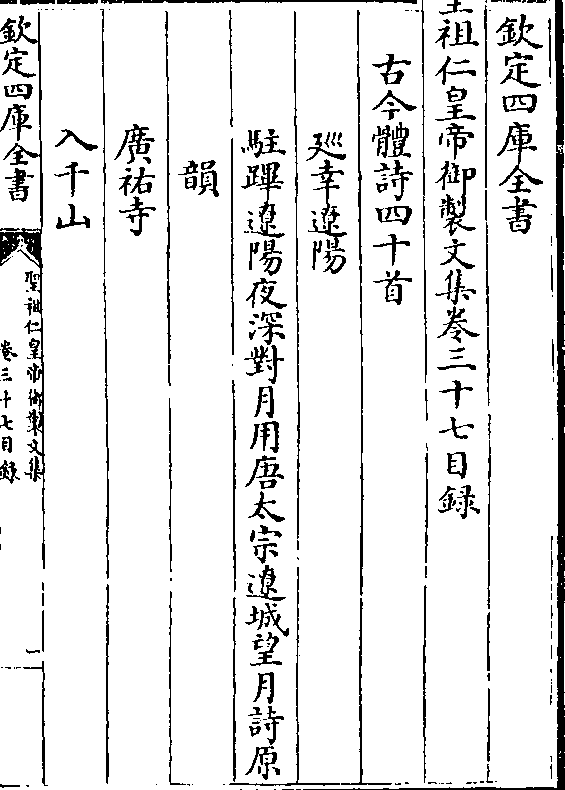 欽定四庫全書
聖祖仁皇帝御製文集卷三十七目録
古今體詩四十首
廵幸遼陽
駐蹕遼陽夜深對月用唐太宗遼城望月詩原
韻
廣祐寺
入千山
欽定四庫全書
聖祖仁皇帝御製文集
卷三十七目録
一